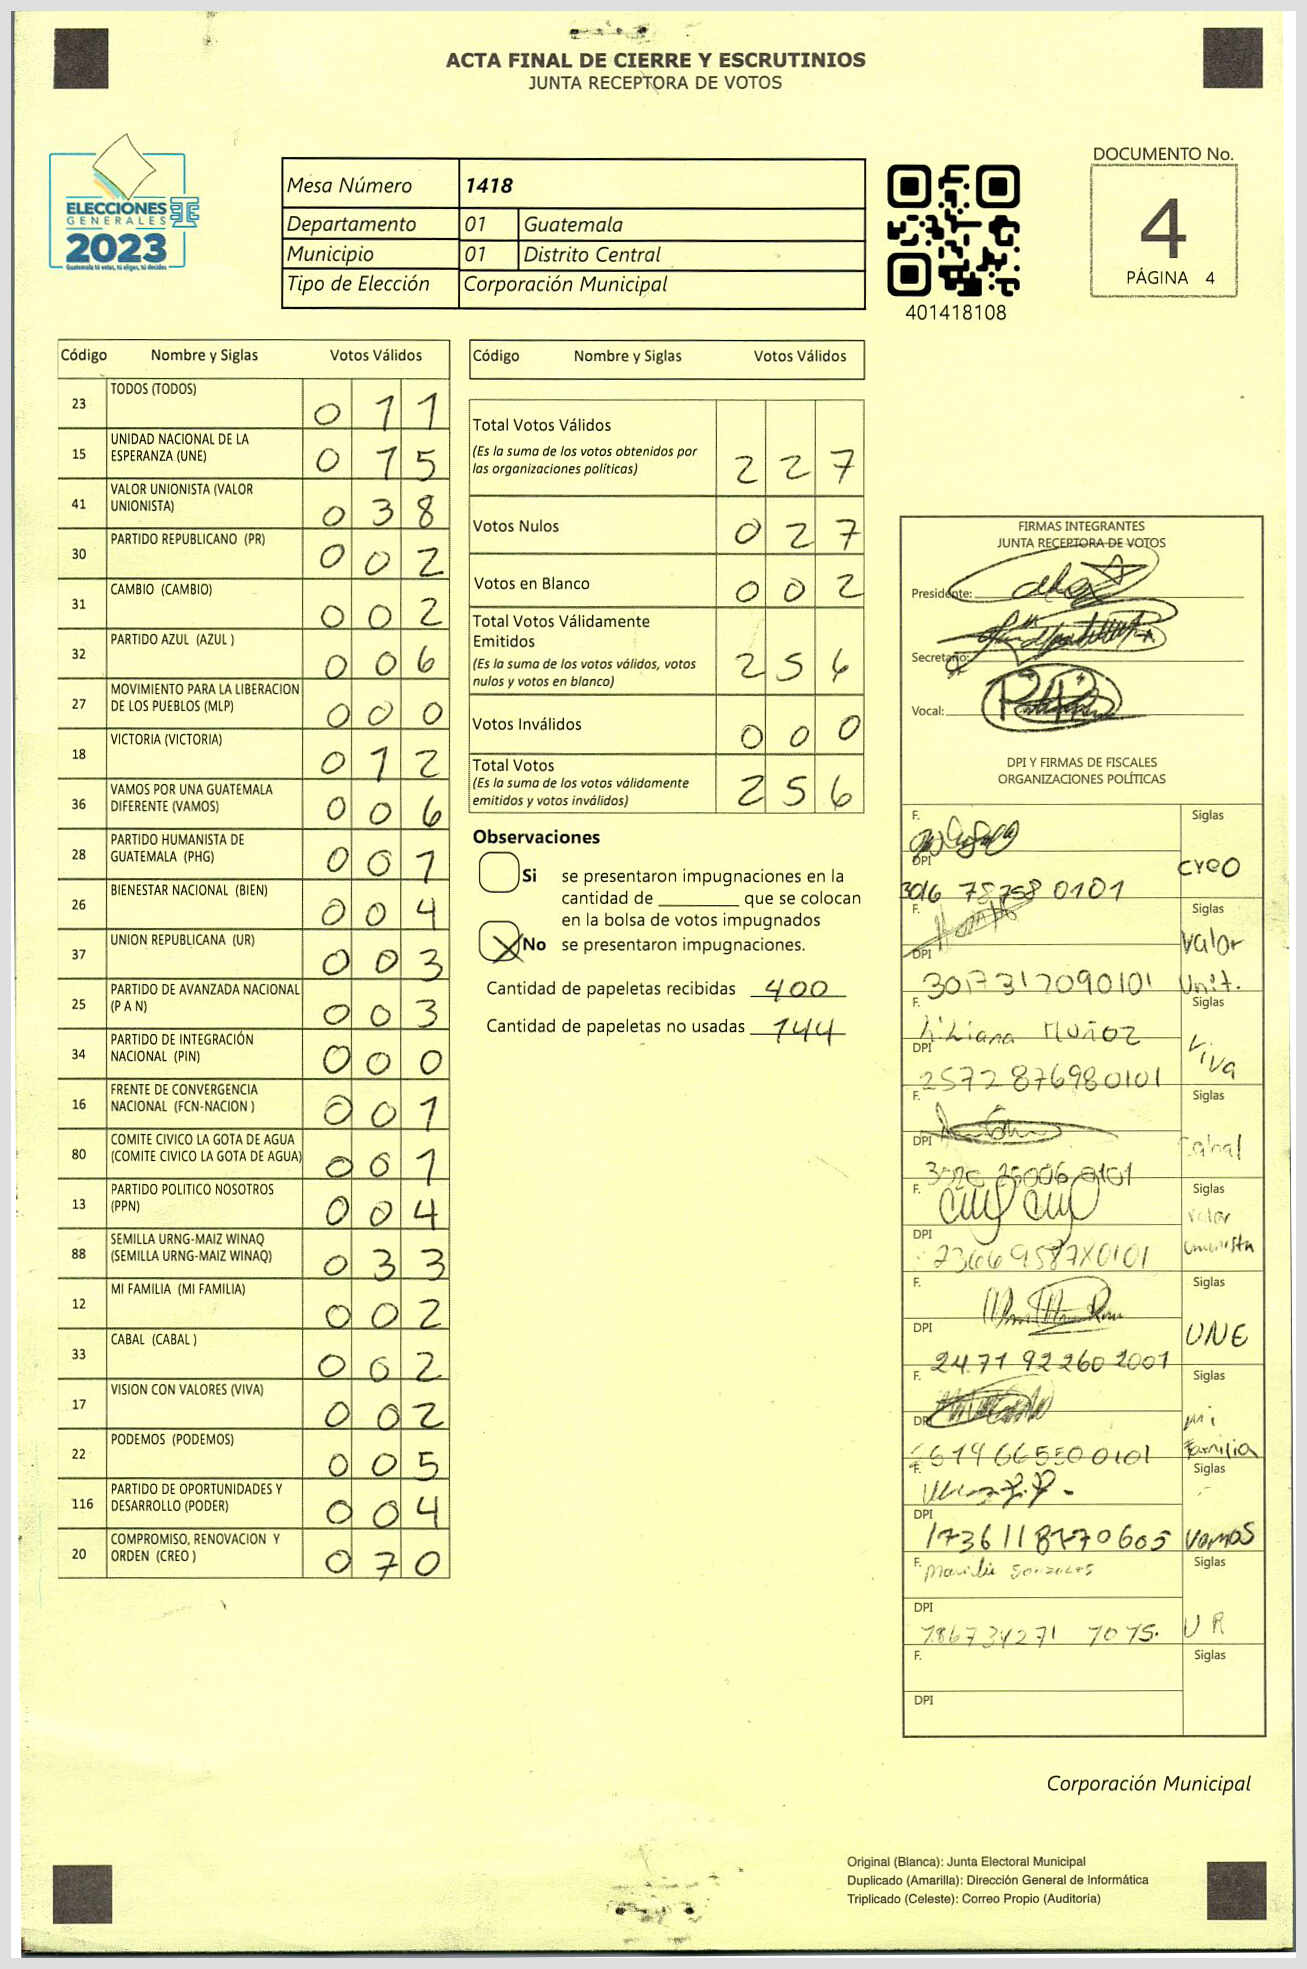 ACTA FINAL DE CIERRE Y ESCRUTINIOS
JUNTA RECEPTORA DE VOTOS
ELECCIONES
GENERALES
2023
Guatemala tú votas, tú eliges, tú decides
Mesa Número 1418
Departamento 01 Guatemala
Municipio 01 Distrito Central
Tipo de Elección Corporación Municipal
401418108
DOCUMENTO No.
4
PÁGINA 4
Código Nombre y Siglas Votos Válidos
23 TODOS (TODOS) 0 1 1
15 UNIDAD NACIONAL DE LA ESPERANZA (UNE) 0 1 5
41 VALOR UNIONISTA (VALOR UNIONISTA) 0 3 8
30 PARTIDO REPUBLICANO (PR) 0 0 2
31 CAMBIO (CAMBIO) 0 0 2
32 PARTIDO AZUL (AZUL ) 0 0 6
27 MOVIMIENTO PARA LA LIBERACION DE LOS PUEBLOS (MLP) 0 0 0
18 VICTORIA (VICTORIA) 0 1 2
36 VAMOS POR UNA GUATEMALA DIFERENTE (VAMOS) 0 0 6
28 PARTIDO HUMANISTA DE GUATEMALA (PHG) 0 0 1
26 BIENESTAR NACIONAL (BIEN) 0 0 4
37 UNION REPUBLICANA (UR) 0 0 3
25 PARTIDO DE AVANZADA NACIONAL (P A N) 0 0 3
34 PARTIDO DE INTEGRACIÓN NACIONAL (PIN) 0 0 0
16 FRENTE DE CONVERGENCIA NACIONAL (FCN-NACION ) 0 0 1
80 COMITE CIVICO LA GOTA DE AGUA (COMITE CIVICO LA GOTA DE AGUA) 0 0 1
13 PARTIDO POLITICO NOSOTROS (PPN) 0 0 4
88 SEMILLA URNG-MAIZ WINAQ (SEMILLA URNG-MAIZ WINAQ) 0 3 3
12 MI FAMILIA (MI FAMILIA) 0 0 2
33 CABAL (CABAL ) 0 0 2
17 VISION CON VALORES (VIVA) 0 0 2
22 PODEMOS (PODEMOS) 0 0 5
116 PARTIDO DE OPORTUNIDADES Y DESARROLLO (PODER) 0 0 4
20 COMPROMISO, RENOVACION Y ORDEN (CREO ) 0 7 0
Código Nombre y Siglas Votos Válidos
Total Votos Válidos
(Es la suma de los votos obtenidos por
las organizaciones políticas) 2 2 7
Votos Nulos 0 2 7
Votos en Blanco 0 0 2
Total Votos Válidamente
Emitidos
(Es la suma de los votos válidos, votos
nulos y votos en blanco) 2 5 6
Votos Inválidos 0 0 0
Total Votos
(Es la suma de los votos válidamente
emitidos y votos inválidos) 2 5 6
Observaciones
Si se presentaron impugnaciones en la
cantidad de ________ que se colocan
en la bolsa de votos impugnados
X No se presentaron impugnaciones.
Cantidad de papeletas recibidas 400
Cantidad de papeletas no usadas 144
FIRMAS INTEGRANTES
JUNTA RECEPTORA DE VOTOS
Presidente:
Secretario:
Vocal:
DPI Y FIRMAS DE FISCALES
ORGANIZACIONES POLÍTICAS
F. Siglas
DPI creo
3016 78758 0101
F. Siglas
DPI Valor
3017317090101 Unit.
F. Siglas
Liliana Muñoz
DPI Viva
2572876980101
F. Siglas
DPI Cabal
F. Siglas
Valor
DPI unionista
F. Siglas
DPI UNE
2471 92260 2001
F. Siglas
DPI mi
familia
F. Siglas
DPI
1736118770605 vamos
F. Siglas
DPI UR
F. Siglas
DPI
Corporación Municipal
Original (Blanca): Junta Electoral Municipal
Duplicado (Amarilla): Dirección General de Informática
Triplicado (Celeste): Correo Propio (Auditoría)